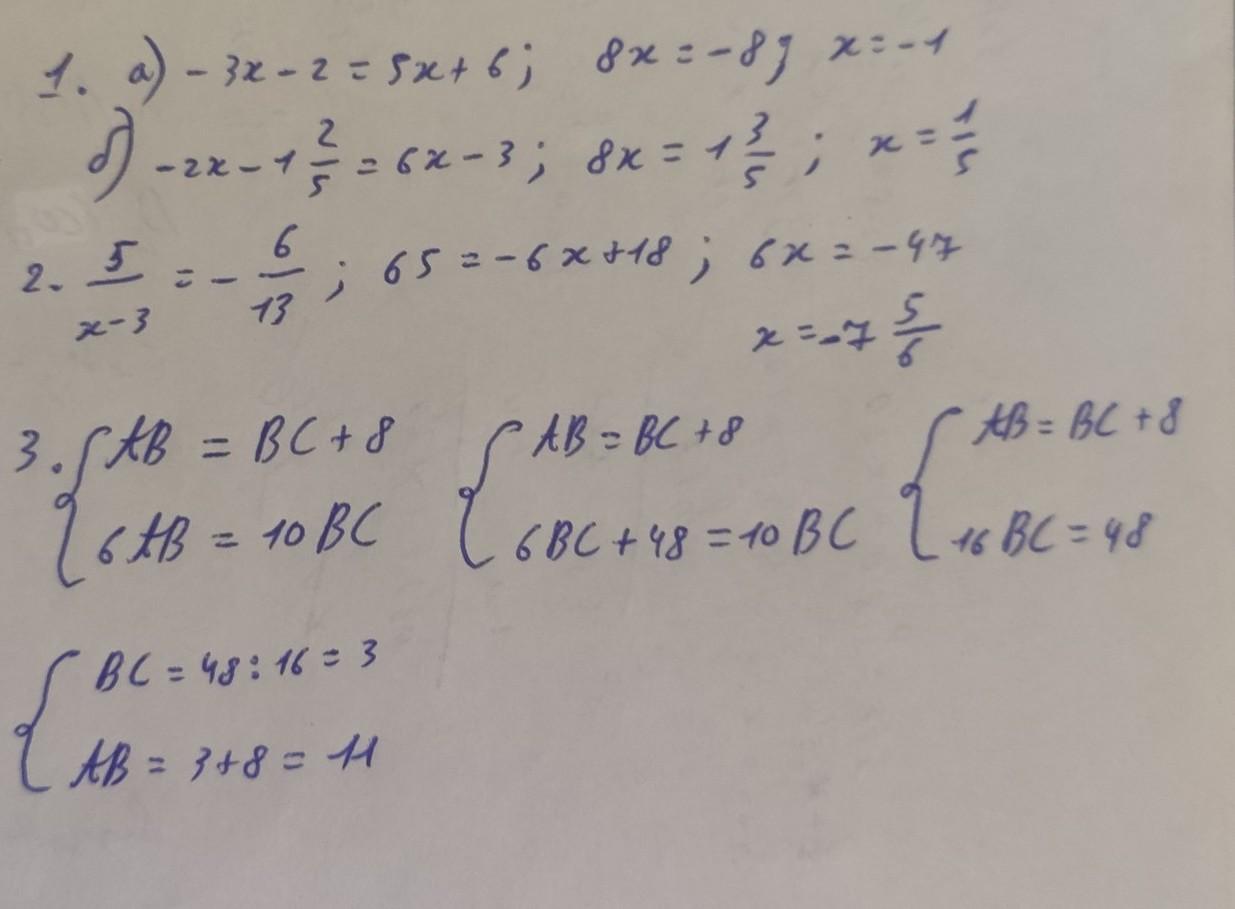 1. а) - 3x - 2 = 5x + 6; 8x = -8; x = -1
б) -2x - 1 2/5 = 6x - 3; 8x = 1 3/5; x = 1/5
2. 5/(x-3) = - 6/13; 65 = -6x+18; 6x = -47
x = -7 5/6
3. { AB = BC + 8 { AB = BC + 8 { AB = BC + 8
6AB = 10BC 6BC + 48 = 10BC 16BC = 48
{ BC = 48 : 16 = 3
AB = 3+8 = 11